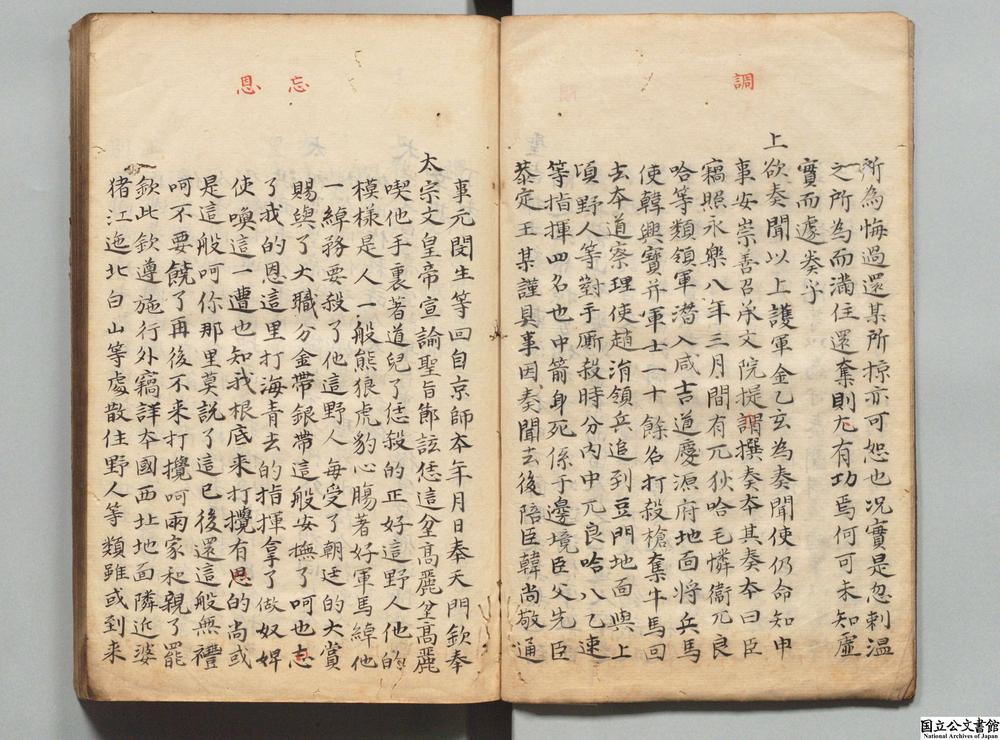 調
所為悔過還某所掠亦可恕也况實是忽剌温
之所為而滿住還奪則尤有功焉何可未知虛
實而遽奏乎
上欲奏聞以上護軍金乙玄為奏聞使仍命知申
事安崇善召承文院提謂撰奏夲其奏夲曰臣
竊照永樂八年三月間有兀狄哈毛憐衞兀良
哈等類領軍潜入咸吉道慶源府地面将兵馬
使韓興寶并軍士一十餘名打殺槍奪牛馬回
去夲道察理使趙涓領兵追到豆門地面與上
項野人等對手厮殺時分内中兀良哈八乙速
等指揮四名也中箭身死係于邊境臣父先臣
恭定王某謹具事因奏聞去後陪臣韓尚敬通
忘
恩
事元閔生等回自京師夲年月日奉天門欽奉
太宗文皇帝宣諭聖旨節該恁這坌高麗坌高麗
喫他手裏著道兒了恁殺的正好這野人他的
模樣是人一般熊狼虎豹心膓著好軍馬綽他
一綽務要殺了他這野人每受了朝廷的大賞
賜與了大職分金帶銀帶這般安撫了呵也忘
了我的恩這里打海青去的指揮拿了做奴婢
使喚這一遭也知我根底来打攪有恩的尚或
是這般呵你那里莫説了這已後還這般無禮
呵不要饒了再後不来打攪呵兩家和親了罷
欽此欽遵施行外竊詳夲國西北地面隣近婆
猪江迤北白山等處散住野人等類雖或到来
国立公文書館
National Archives of Japan